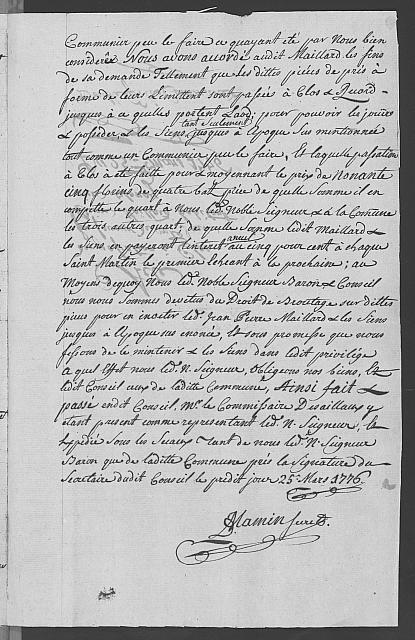 Communier peu le faire ce quayant été par Nous bien
considerér Nous avons accordé audit Maillard les fins
de sa demande Tellement que les dittes pièces de prés à
forme de leurs Limittent sont passée à Clos & Record
jusques à ce quelles portent Laod; pour pouvoir les jouïre
tant seulement
& posséder, & les Siens, jusques à l'époque sus mentionnée
tout comme un Communier peu le faire, Et laquelle passation
à Clos a été faitte pour & moyennant le prix de Nonante
cinq florins de quatre batz pièce de quelle Somme il en
compette le quart à Nous led. Noble Seigneur & à la Comune
les trois autres quart; de quelle Somme ledit Maillard &
annuel
les Siens en payeront l'interet au cinq pour cent à chaque
Saint Martin le premier Echéant à le prochaine; au
Moyen dequoy Nous led. Noble Seigneur Baron & Conseil
nous nous Sommes devetus du Droit de Broutage sur dittes
pièces pour en investir led. Jean Pierre Maillard & les Siens
jusques à l'époque sus enoncée, Et sous promesse que nous
fesons de le maintenir & les Siens dans ledit privilège
à quel Effet nous led. N. Seigneur, obligeons nos biens, Et
ledit Conseil ceux de laditte Commune, Ainsi fait &
passé en dit Conseil, Mr. le Commissaire Desaillaux y
étant present comme representant led. N. Seigneur, &
Expedié sous les Sceaux tant de nous led. N. Seigneur
Baron que de laditte Commune près la Signature du
Secretaire dudit Conseil le prédit jour 25e Mars 1776.
Mamin Secret.